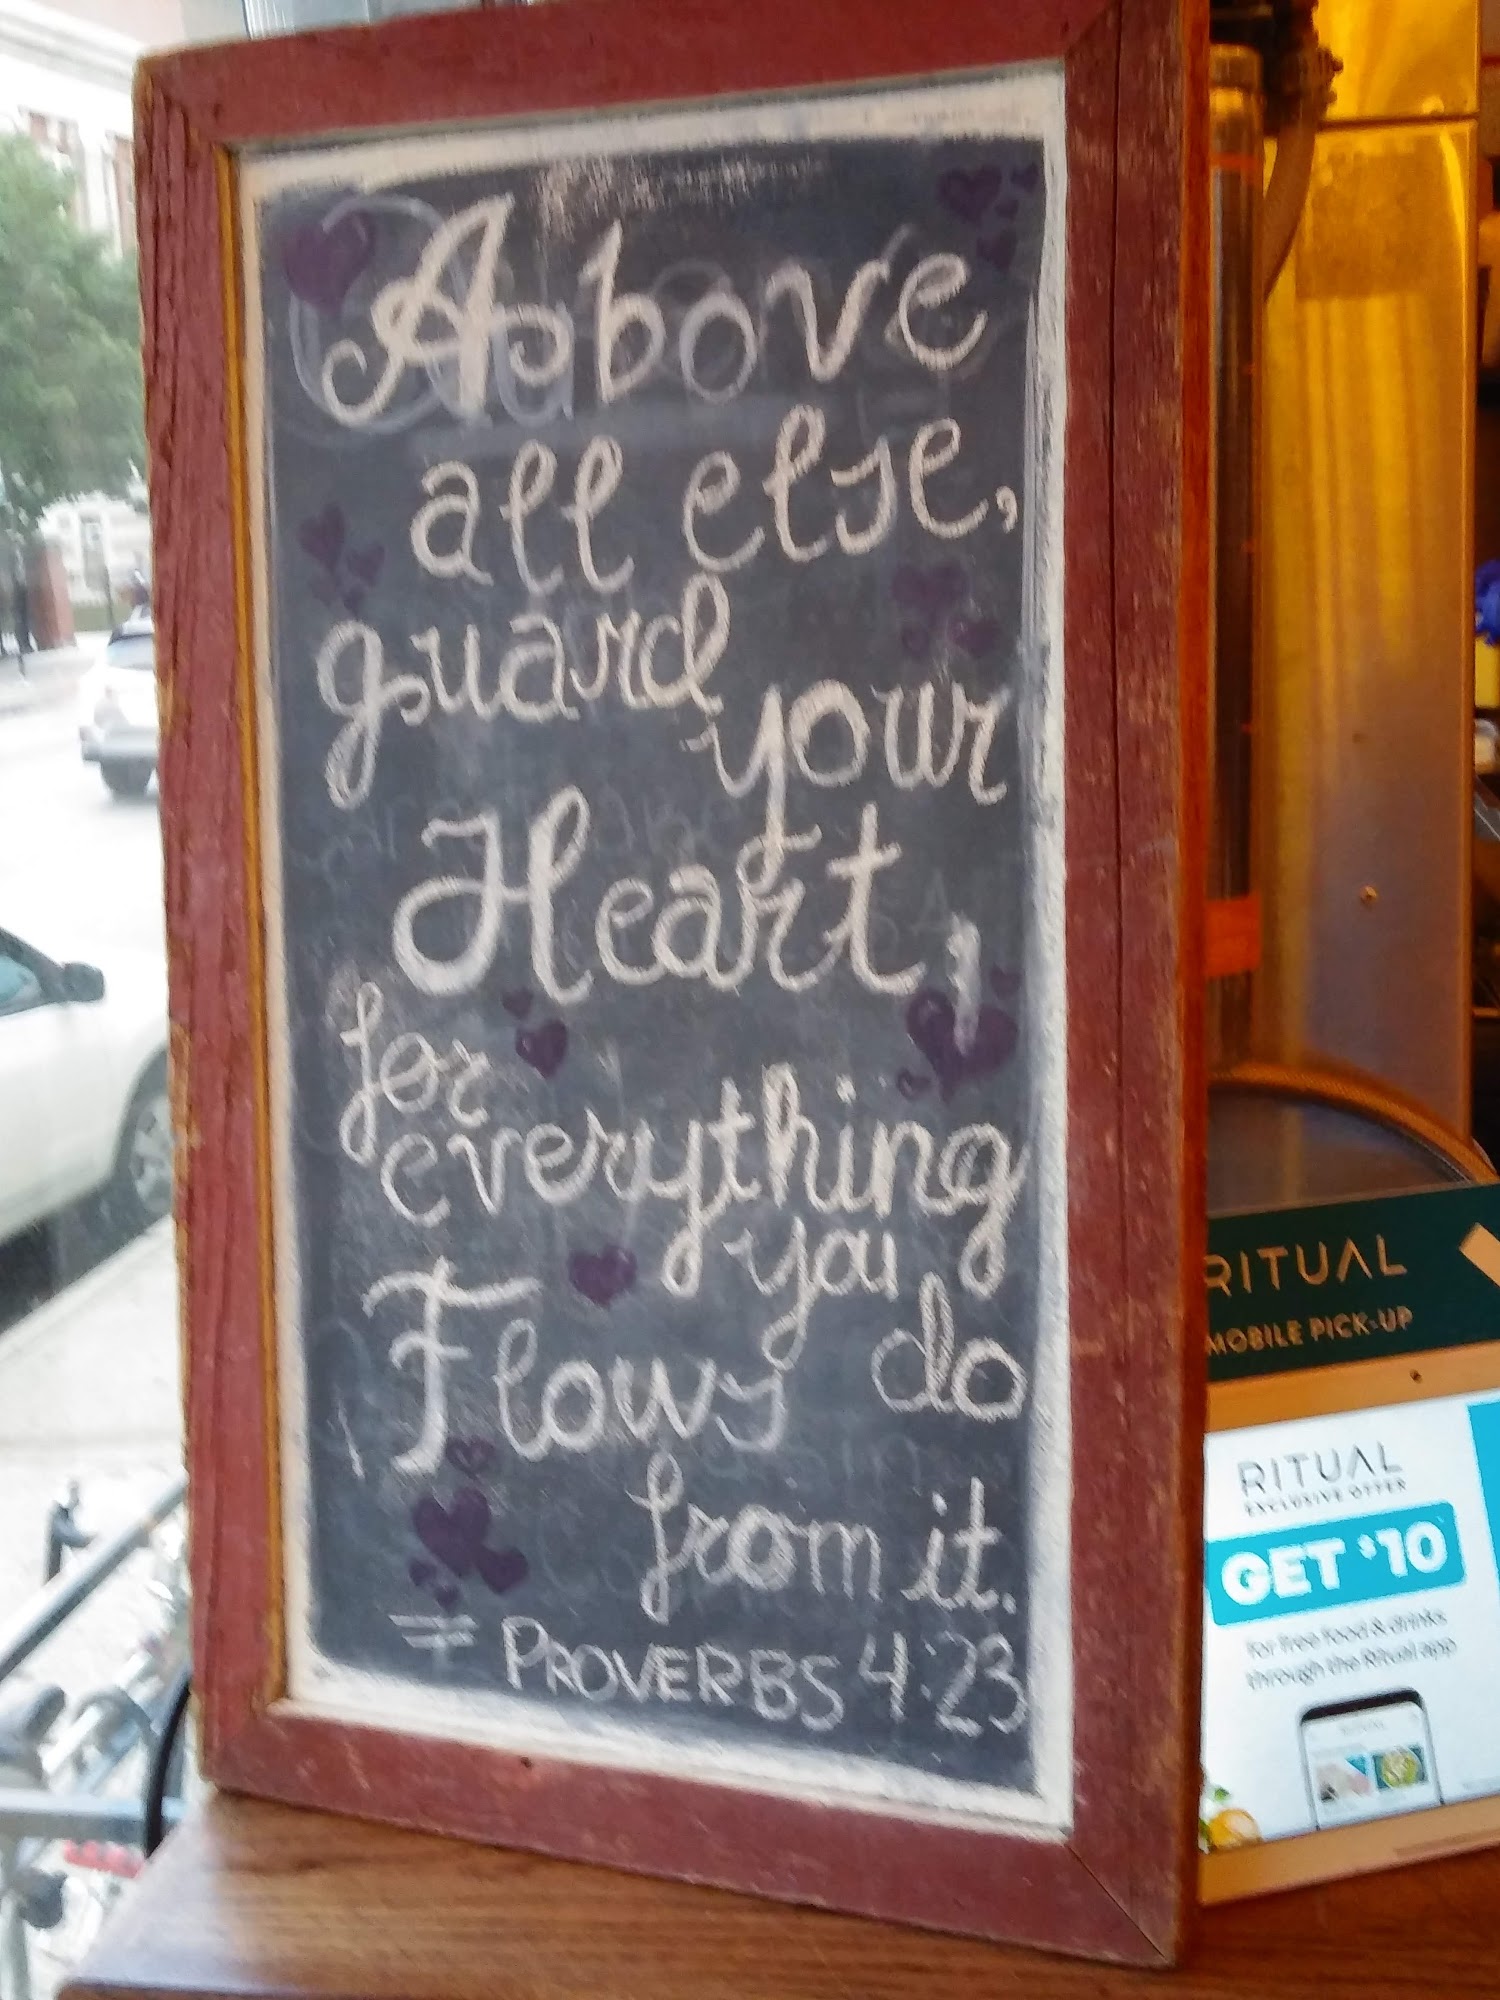 Above
all else,
guard
your
Heart,
for
everything
you
Flows do
from it.
= PROVERBS 4:23
RITUAL
MOBILE PICK-UP
RITUAL
EXCLUSIVE OFFER
GET $10
for free food & drinks
through the Ritual app